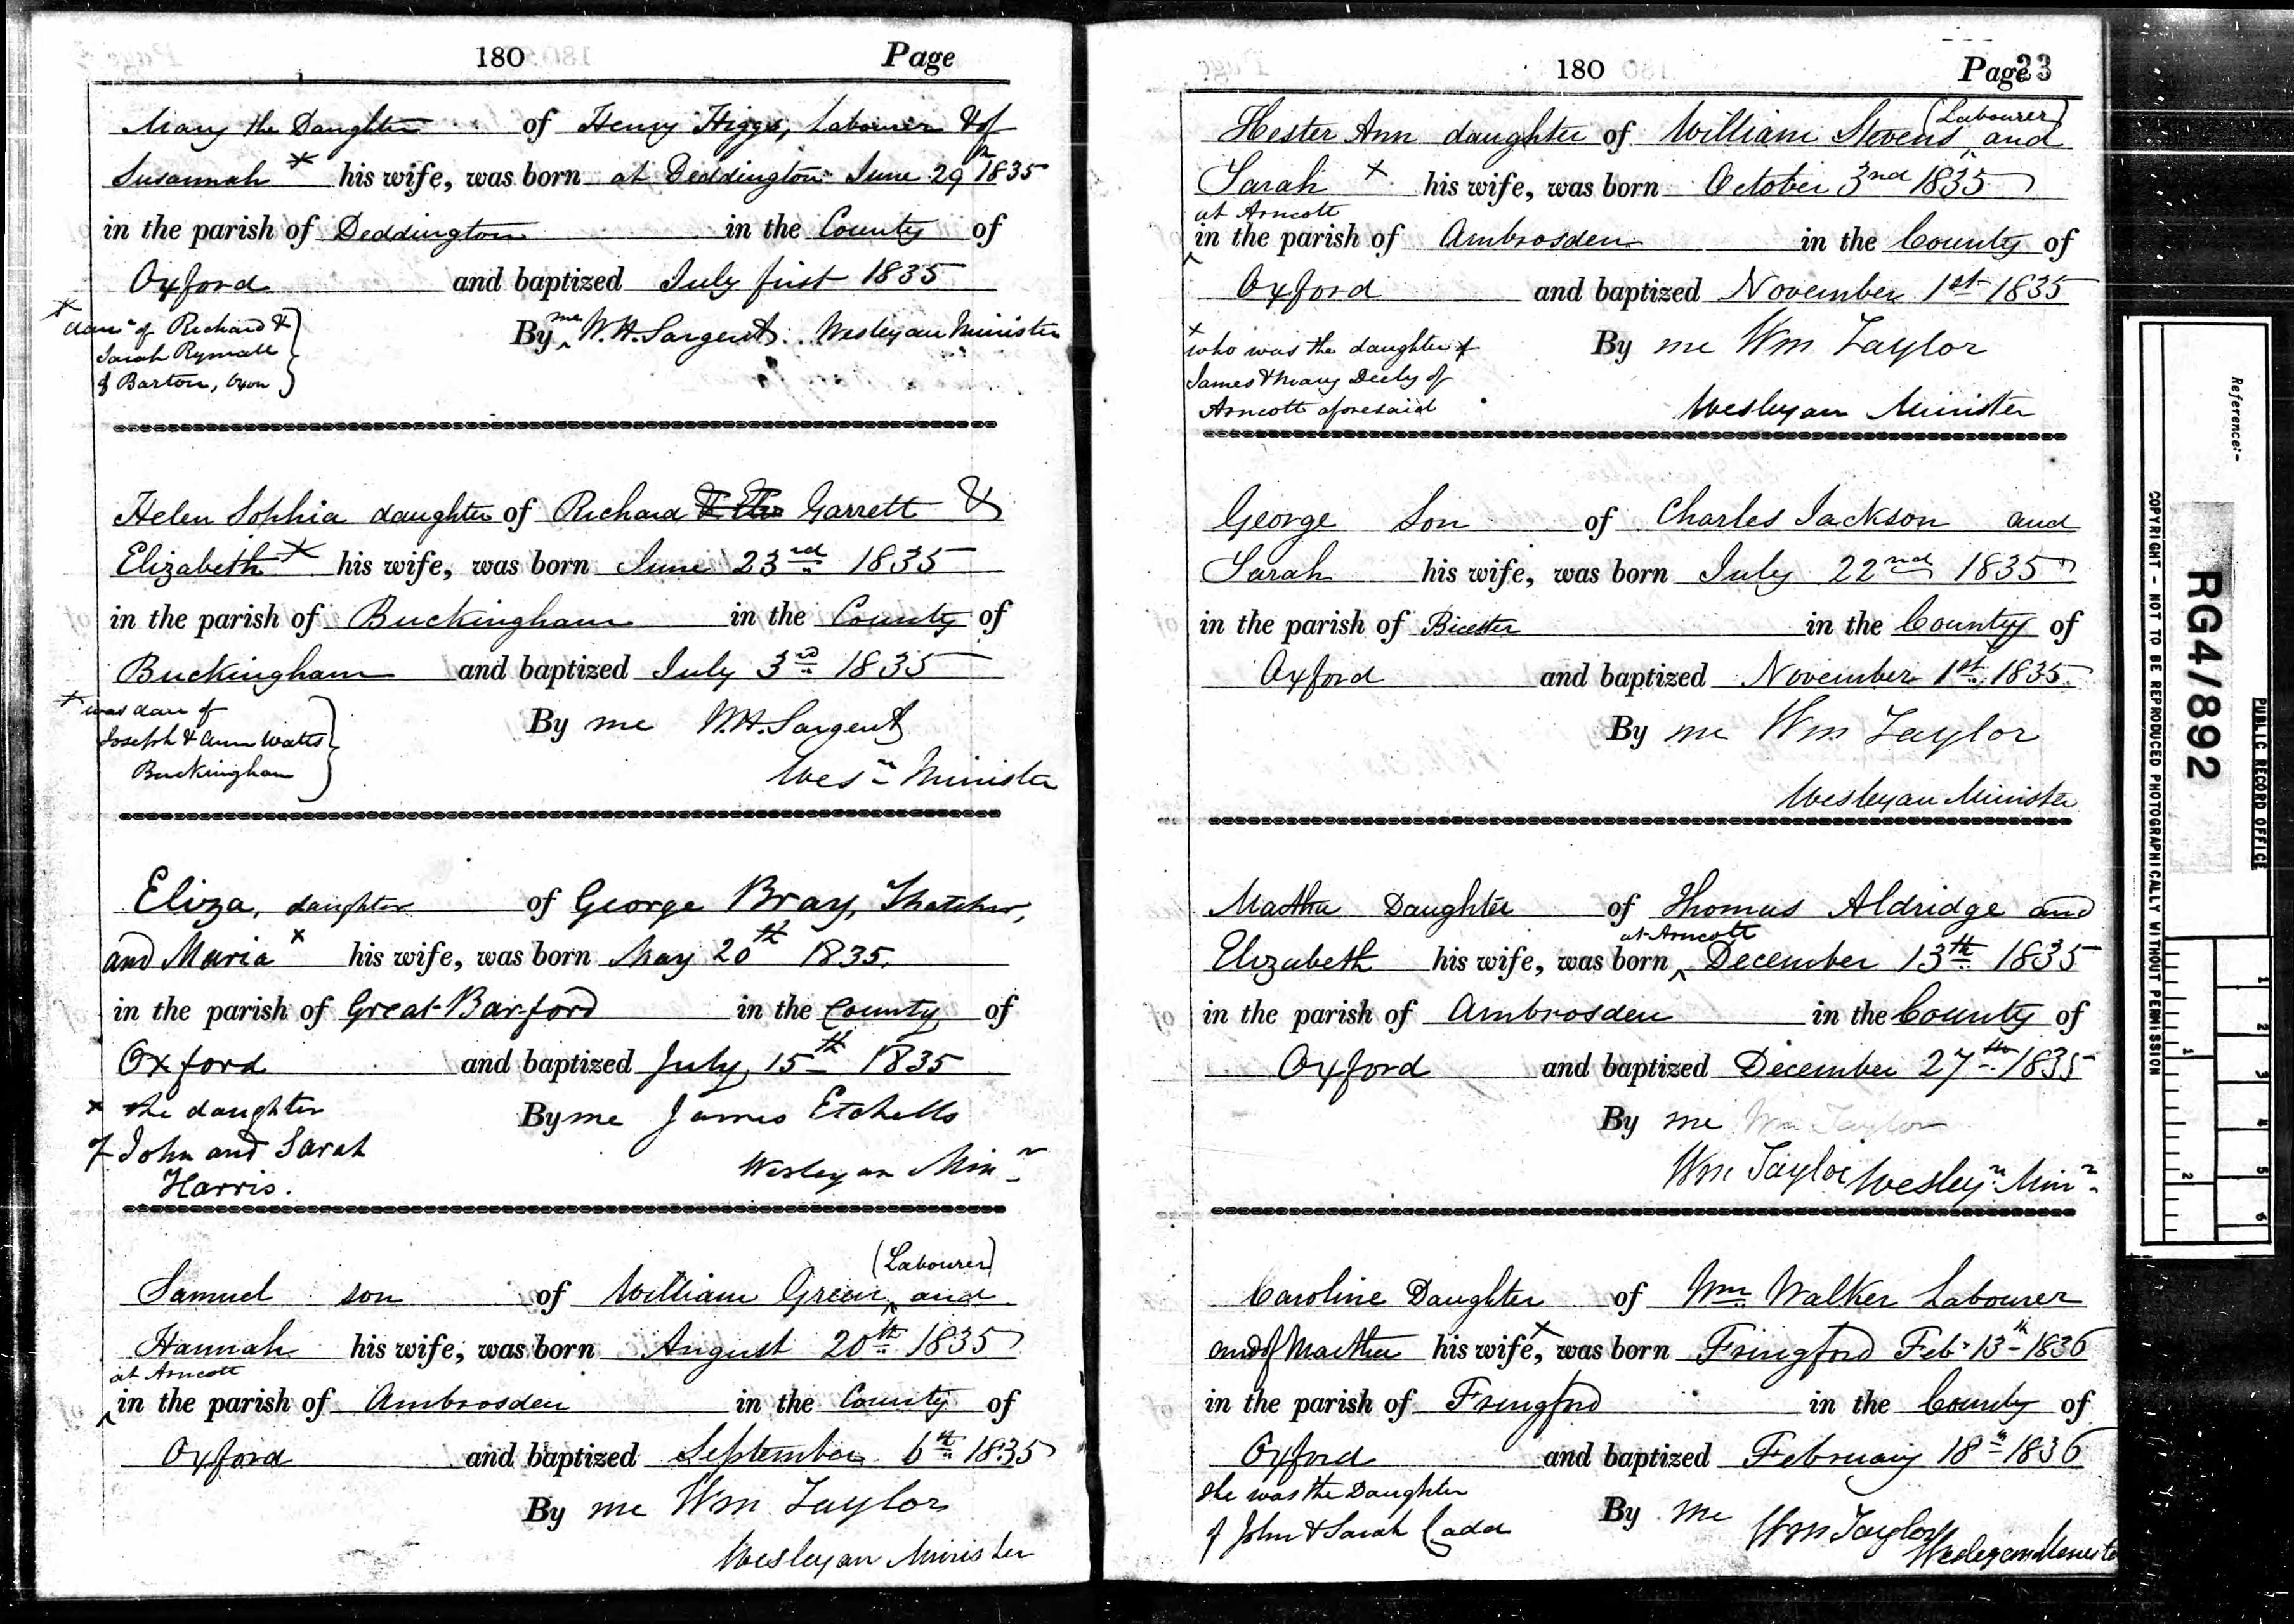 180 Page
Mary the Daughter of Henry Higgs, Labourer & of
Susannah x his wife, was born at Deddington June 29th 1835
in the parish of Deddington in the County of
Oxford and baptized July first 1835
x daur of Richard &
Sarah Rymall
of Barton, Oxon
By me W.H. Sargent. Wesleyan Minister
Helen Sophia daughter of Richard Garrett &
Elizabeth x his wife, was born June 23rd 1835
in the parish of Buckingham in the County of
Buckingham and baptized July 3rd 1835
x was daur of
Joseph & Ann Watts
Buckingham
By me W.H. Sargent
Wesn Minister
Eliza, daughter of George Bray, Thatcher,
and Maria x his wife, was born May 20th 1835.
in the parish of Great Barford in the County of
Oxford and baptized July 15th 1835
x the daughter
of John and Sarah
Harris.
By me James Etchells
Wesleyan Minr
(Labourer)
Samuel son of William Green ^ and
Hannah his wife, was born August 20th 1835
at Arncott
^ in the parish of Ambrosden in the County of
Oxford and baptized September 6th 1835
By me Wm Taylor
Wesleyan Minister
180 Page 33
(Labourer)
Hester Ann daughter of William Stevens ^ and
Sarah x his wife, was born October 3nd 1835
at Arncott
^ in the parish of Ambrosden in the County of
Oxford and baptized November 1st 1835
x who was the daughter of
James & Mary Deely of
Arncott aforesaid
By me Wm Taylor
Wesleyan Minister
George Son of Charles Jackson and
Sarah his wife, was born July 22nd 1835
in the parish of Bicester in the County of
Oxford and baptized November 1st 1835
By me Wm Taylor
Wesleyan Minister
Martha Daughter of Thomas Aldridge and
at Arncott
Elizabeth his wife, was born ^ December 13th 1835
in the parish of Ambrosden in the County of
Oxford and baptized December 27th 1835
By me Wm Taylor
Wm Taylor Wesleyn Minr
Caroline Daughter of Wm Walker Labourer
and of Martha his wife x, was born Fringford Feb 13th 1836
in the parish of Fringford in the County of
Oxford and baptized February 18th 1836
she was the Daughter
of John & Sarah Cadd
By me Wm Taylor
Wesleyan Minister
Reference:-
RG4/892
PUBLIC RECORD OFFICE
COPYRIGHT - NOT TO BE REPRODUCED PHOTOGRAPHICALLY WITHOUT PERMISSION
1 2 3 4 5 6
1 2